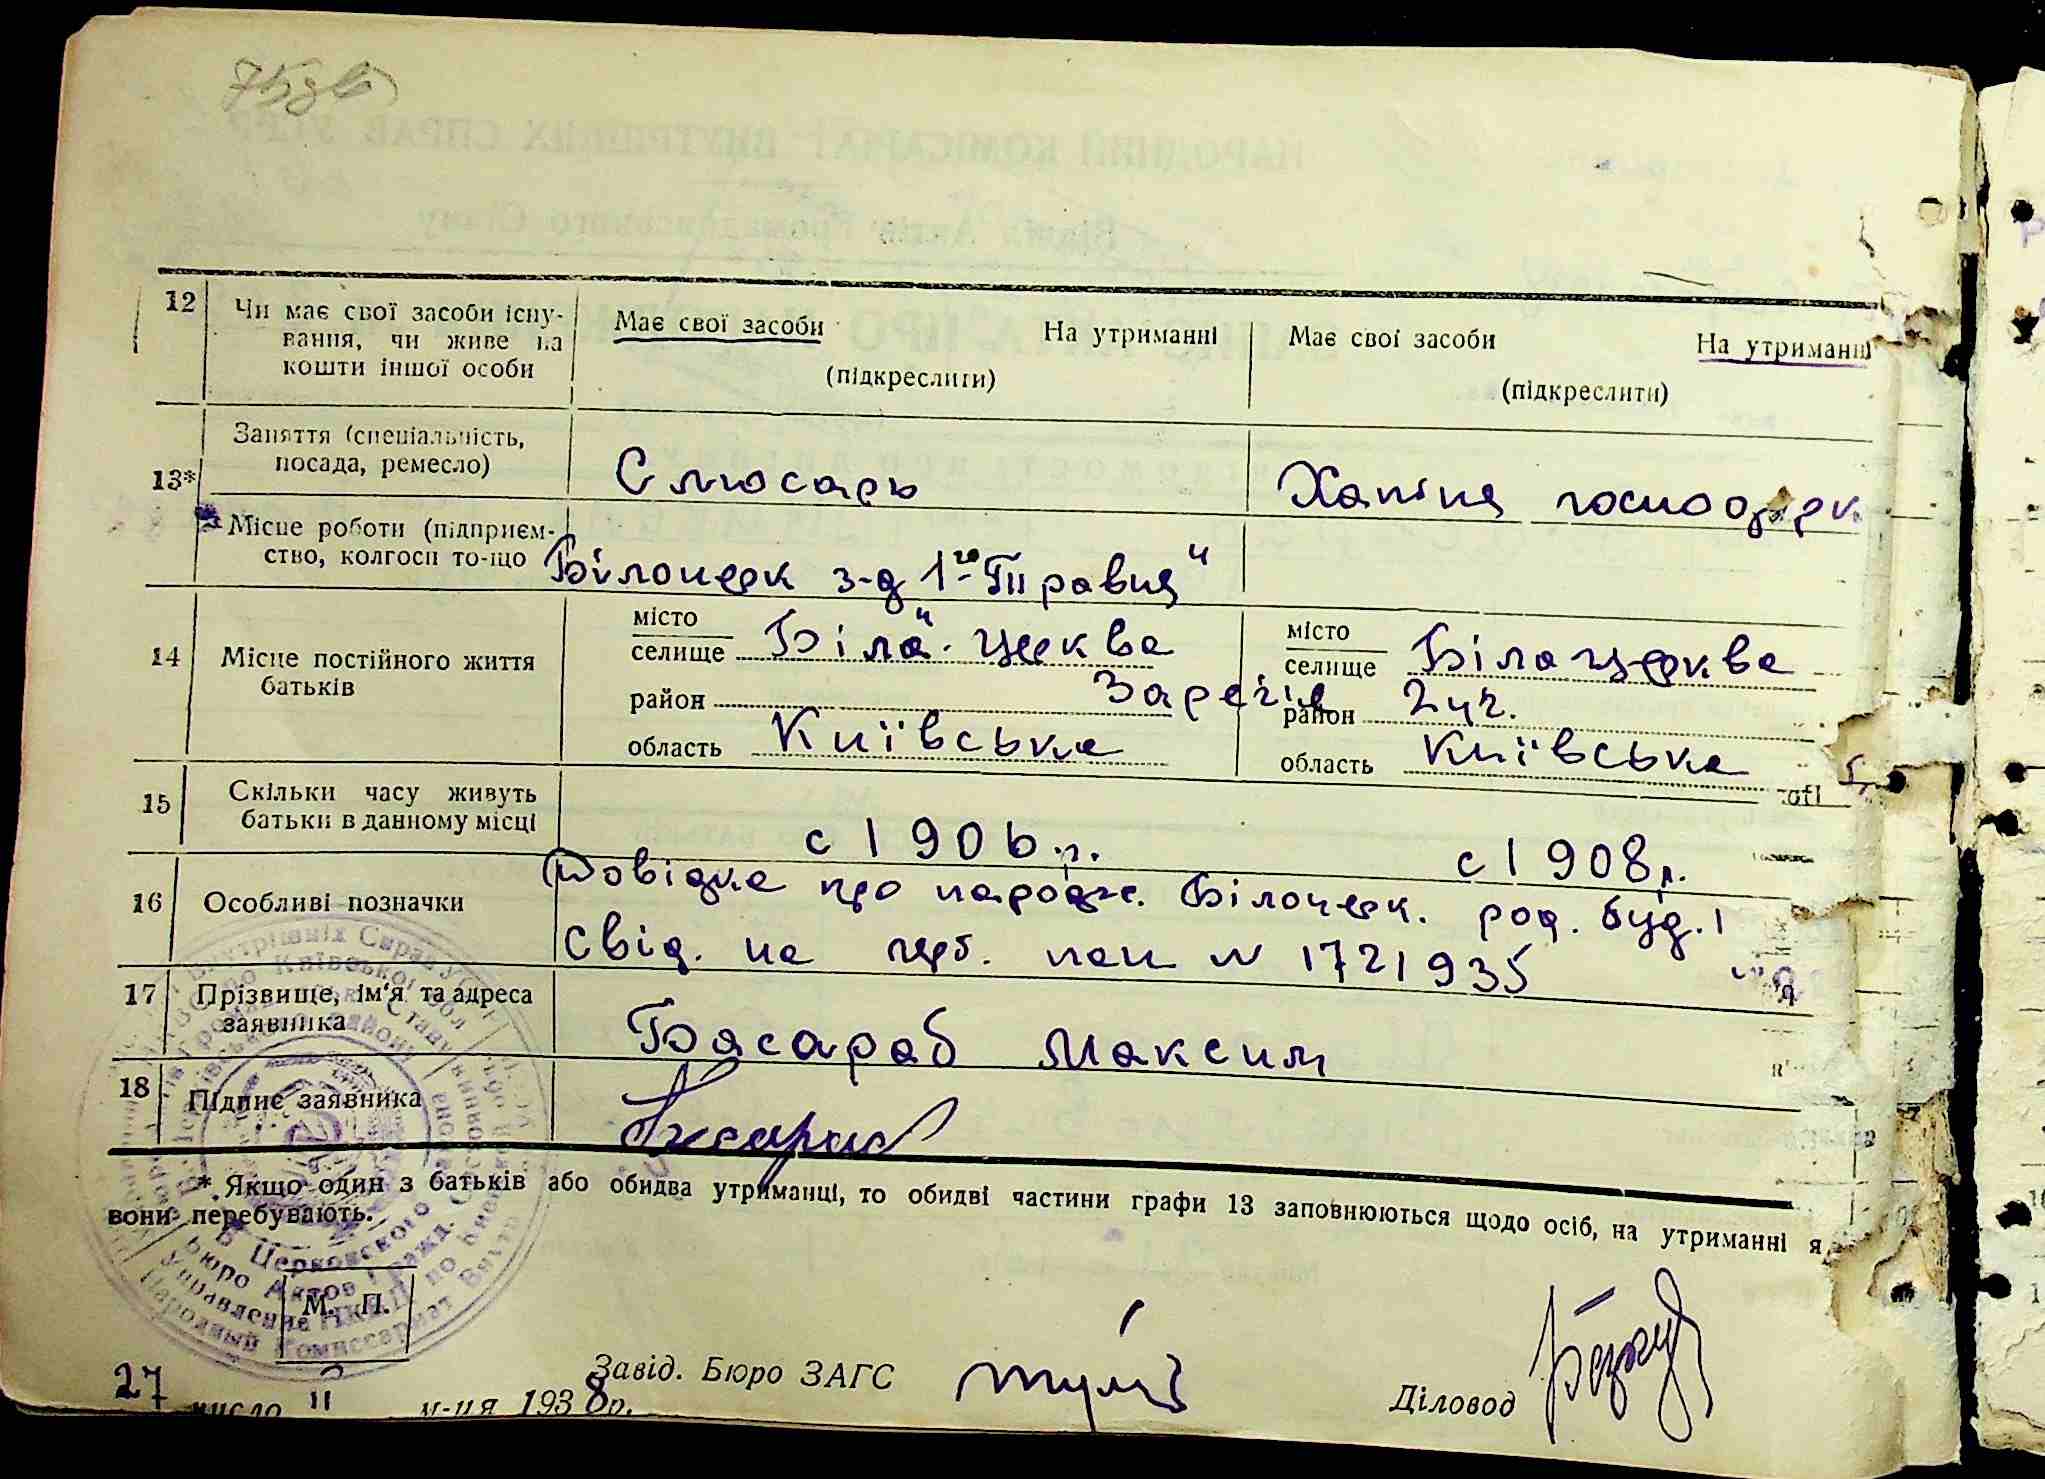 12 Чи має свої засоби існу-
вання, чи живе на
кошти іншої особи
Має свої засоби На утриманні
(підкреслити)
Має свої засоби На утриманні
(підкреслити)
13* Заняття (спеціальність,
посада, ремесло)
Слюсарь
Хатня господарк.
Місце роботи (підприєм-
ство, колгосп то-що
Білоцерк з-д 1го Травня"
14 Місце постійного життя
батьків
місто
селище Біла Церква
район Заречіе
область Київська
місто
селище Біла Церква
район 2 уч.
область Київська
15 Скільки часу живуть
батьки в данному місці
с 1906 р. с 1908 р.
16 Особливі позначки
Довідка про народж. Білоцерк. род. буд. 1
Свід. на шлб. пап N 1721935
17 Прізвище, ім'я та адреса
заявника
Басараб Максим
18 Підпис заявника
* Якщо один з батьків або обидва утриманці, то обидві частини графи 13 заповнюються щодо осіб, на утриманні я
вони перебувають.
Б Церковского
Бюро Актов Гражд.
Управление НКВД по Киевской
Народный Комиссариат Внутр
М. П.
27 число 11 м-ця 1938р.
Завід. Бюро ЗАГС
Діловод